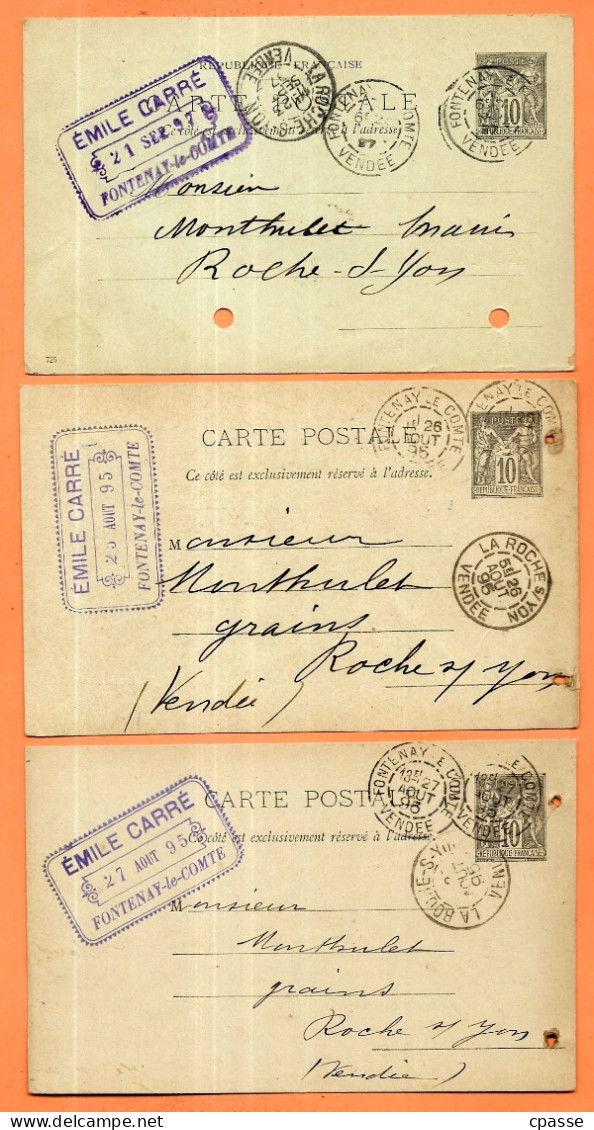 RÉPUBLIQUE FRANÇAISE
CARTE POSTALE
Ce côté est exclusivement réservé à l'adresse.
ÉMILE CARRÉ
21 SEP 97
FONTENAY-le-COMTE
LA ROCHE-S-YON
VENDÉE
FONTENAY LE COMTE
VENDÉE
FONTENAY LE
VENDÉE
POSTE
10
RÉPUBLIQUE FRANÇAISE
Monsieur
Monthulet
Roche-S-Yon
725
CARTE POSTALE
Ce côté est exclusivement réservé à l'adresse.
ÉMILE CARRÉ
25 AOUT 95
FONTENAY-le-COMTE
FONTENAY LE COMTE
26
AOUT
95
FONTENAY LE COMTE
POSTE
10
RÉPUBLIQUE FRANÇAISE
LA ROCHE S/YON
5E 26
AOUT
95
VENDÉE
Monsieur
Monthulet
grains
Roche s/ Yon
(Vendée)
CARTE POSTALE
Ce côté est exclusivement réservé à l'adresse.
ÉMILE CARRÉ
27 AOUT 95
FONTENAY-le-COMTE
FONTENAY LE COMTE
27
AOUT
95
VENDÉE
LE COMTE
VENDÉE
10
RÉPUBLIQUE FRANÇAISE
LA ROCHE-S-YON
Monsieur
Monthulet
grains
Roche s/ Yon
(Vendée)
cpasse